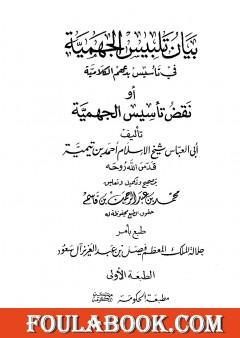 بيان تلبيس الجهمية
في تأسيس بدعهم الكلامية
أو
نقض تأسيس الجهمية
تأليف
أبي العباس شيخ الإسلام أحمد بن تيمية
قدس الله روحه
بتصحيح وتكميل وتعليق
محمد بن عبد الرحمن بن قاسم
حقوق الطبع محفوظة له
طبع بأمر
جلالة الملك المعظم فيصل بن عبد العزيز آل سعود
الطبعة الأولى
مطبعة الحكومة
FOULABOOK.COM